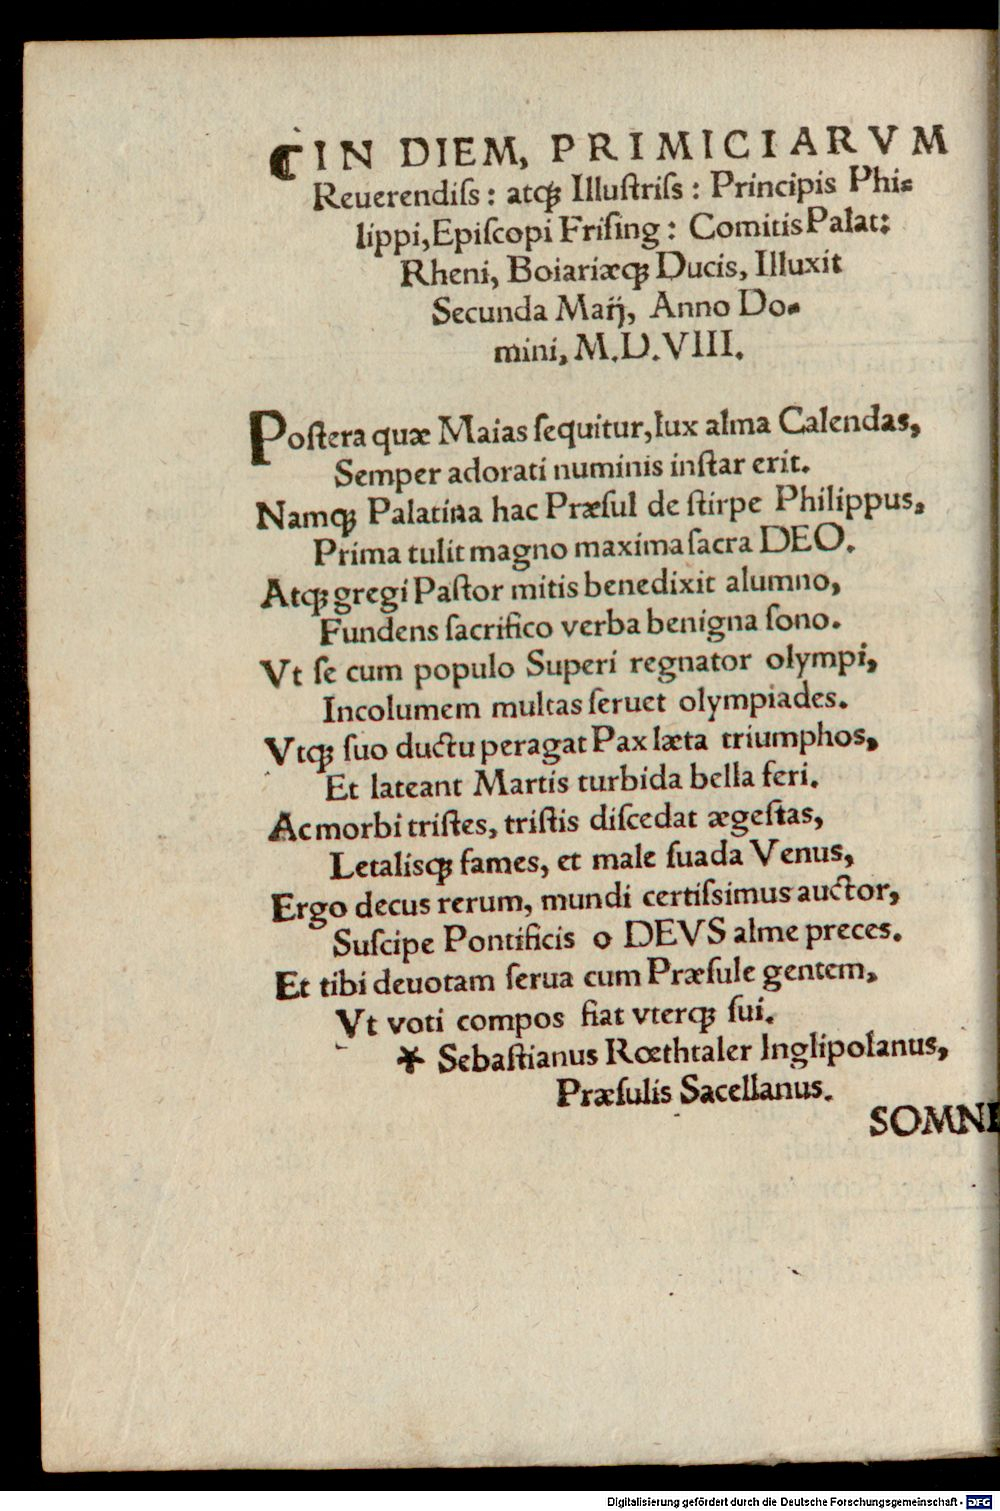 ⸿IN DIEM, PRIMICIARVM
Reuerendiſs: atqꝫ Illuſtriſs: Principis Phi⸗
lippi, Epiſcopi Friſing: Comitis Palat:
Rheni, Boiariæqꝫ Ducis, Illuxit
Secunda Maij, Anno Do⸗
mini, M.D.VIII.
Poſtera quæ Maias ſequitur, lux alma Calendas,
Semper adorati numinis inſtar erit.
Namqꝫ Palatina hac Præſul de ſtirpe Philippus,
Prima tulit magno maxima ſacra DEO.
Atqꝫ gregi Paſtor mitis benedixit alumno,
Fundens ſacrifico verba benigna ſono.
Vt ſe cum populo Superi regnator olympi,
Incolumem multas ſeruet olympiades.
Vtqꝫ ſuo ductu peragat Pax læta triumphos,
Et lateant Martis turbida bella feri.
Ac morbi triſtes, triſtis diſcedat ægeſtas,
Letalisqꝫ fames, et male ſuada Venus,
Ergo decus rerum, mundi certiſsimus auctor,
Suſcipe Pontificis o DEVS alme preces.
Et tibi deuotam ſerua cum Præſule gentem,
Vt voti compos fiat vterqꝫ ſui.
* Sebaſtianus Rœthtaler Inglipolanus,
Præſulis Sacellanus.
SOMNI
Digitalisierung gefördert durch die Deutsche Forschungsgemeinschaft - DFG